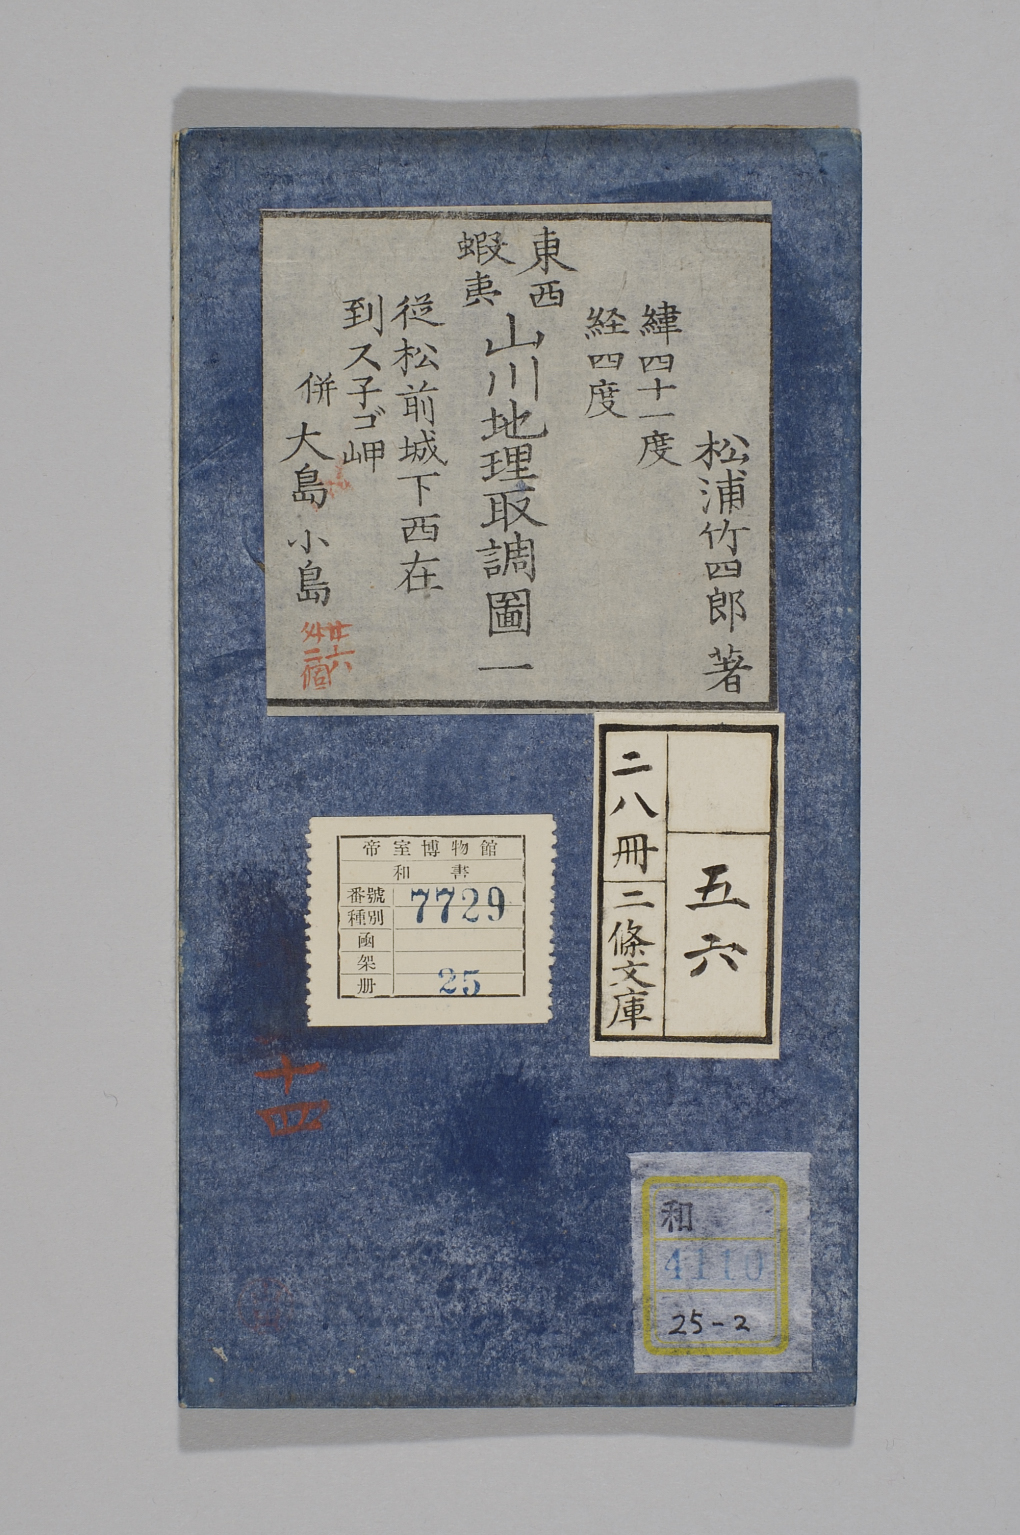 松浦竹四郎 著
緯四十一度
経四度
東西
蝦夷
山川地理取調圖 一
従松前城下西在
到ス子ゴ岬
併 大島 小島
廿六
外二個
五六
二八冊
二條文庫
帝室博物館
和書
番號 7729
種別
函
架
册 25
十四
和
4110
25-2